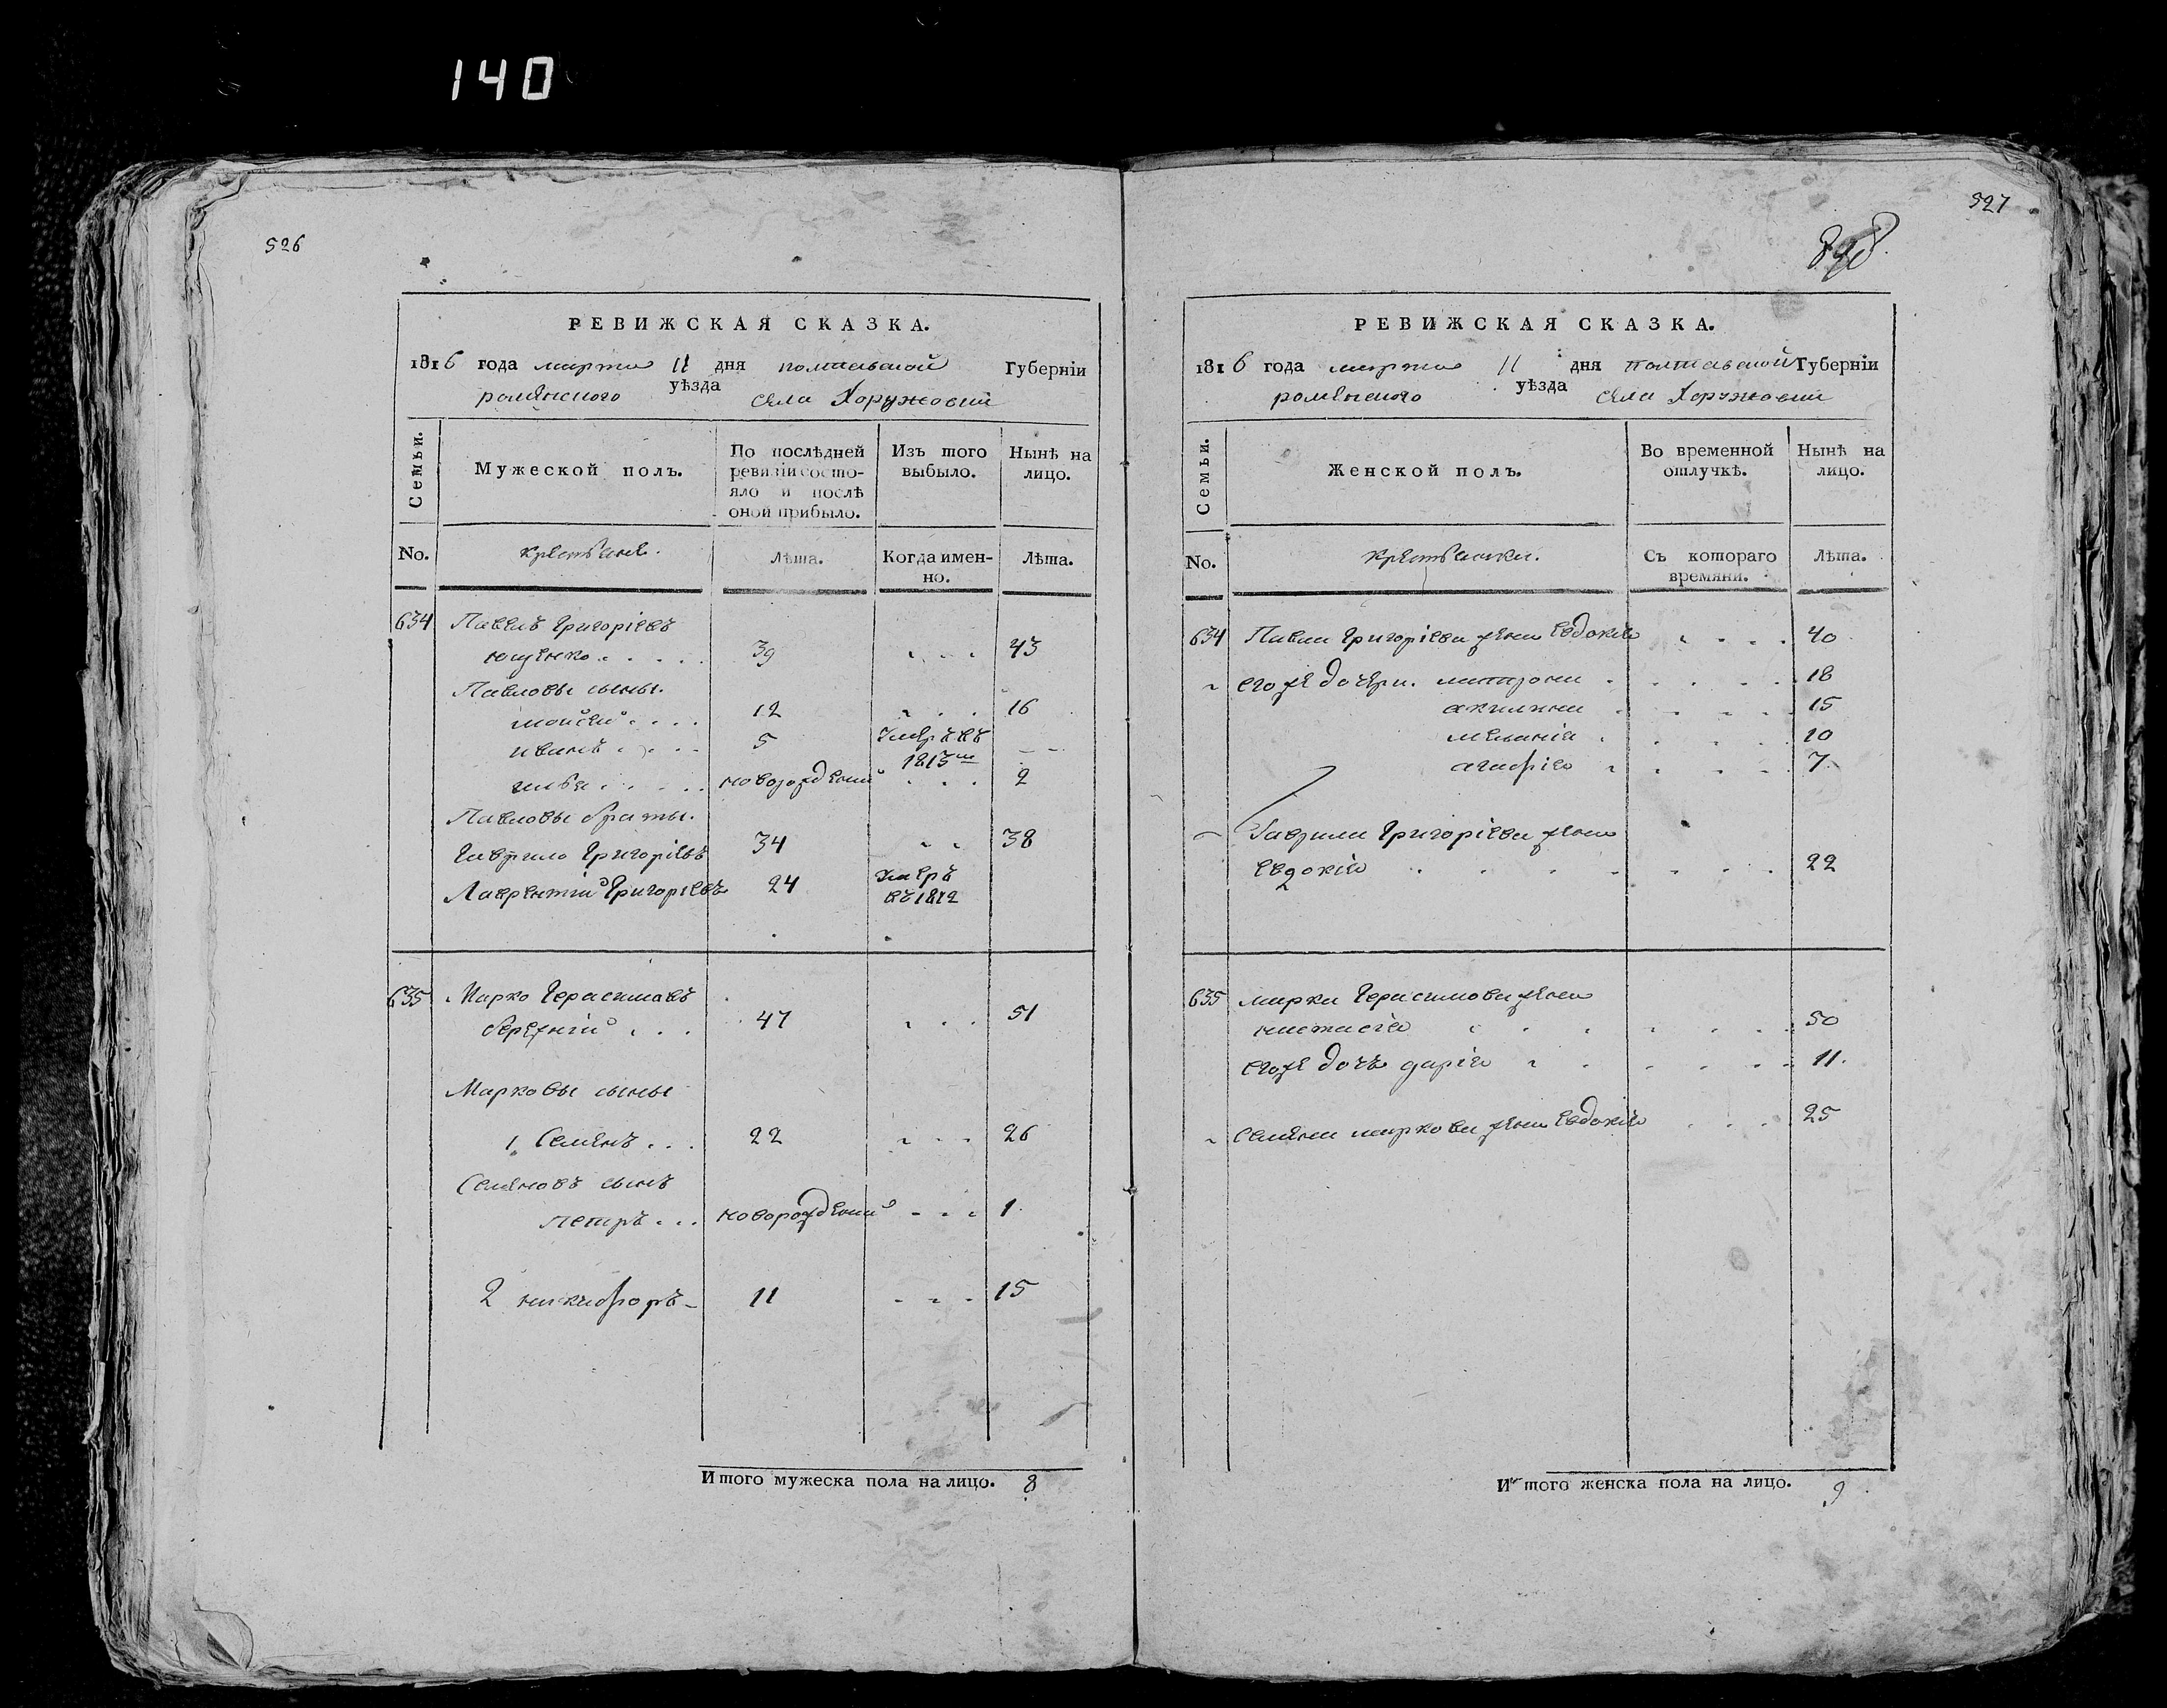 140
526
РЕВИЖСКАЯ СКАЗКА.
1816 года марта 11 дня полтавской Губерніи
роменского уѣзда села Хоружовки
Семьи.
Мужеской полъ.
По послѣдней
ревизіи состо-
яло и послѣ
оной прибыло.
Изъ того
выбыло.
Нынѣ на
лицо.
No.
крестьяне.
Лѣта.
Когда имен-
но.
Лѣта.
634 Павелъ Григоріевъ
ющенко . . . . . 39 . . . 43
Павловы сыны.
мойсей . . . . 12 . . . 16
иванъ . . . . 5 умеръ въ
1813м - -
илья . . . . . новорожденый . . . 2
Павловы браты.
Гаврило Григоріевъ 34 . . 38
Лаврентий Григоріевъ 24 умеръ
въ 1812
635 Марко Герасимовъ
бережний . . . 47 . . . 51
Марковы сыны
1. Семенъ . . . 22 . . . 26
Семеновъ сынъ
петръ . . . новорожденый - - - 1
2 никифоръ - 11 - - - 15
Итого мужеска пола на лицо. 8
527
РЕВИЖСКАЯ СКАЗКА.
1816 года марта 11 дня полтавской Губерніи
роменского уѣзда села Хоружовки
Семьи.
Женской полъ.
Во временной
отлучкѣ.
Нынѣ на
лицо.
No.
крестьянки.
Съ котораго
времяни.
Лѣта.
634 Павла Григоріева жена Евдокія . . . . 40
его же дочери. матрона . . . . . 18
акилина . . . . 15
меланія . . . . 10
агафія . . . . 7
Гаврила Григоріева жена
Евдокія . . . . . . . . 22
635 марка Герасимова жена
настасія . . . . . . . . 50
его же дочь дарія . . . . . . 11.
Семена маркова жена Евдокія . . . 25
Итого женска пола на лицо. 9